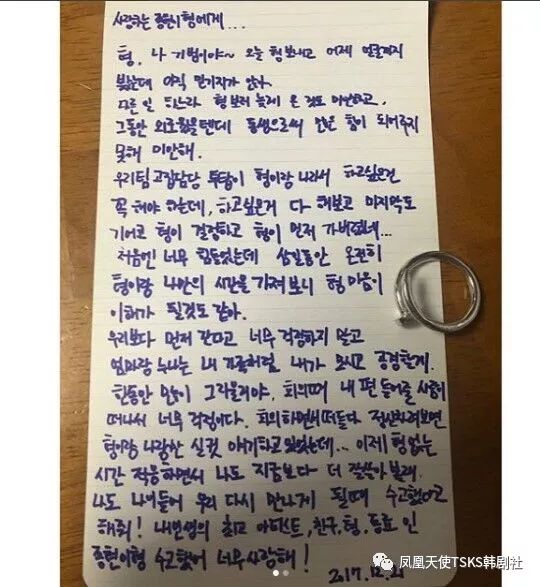 사랑하는 종현이형에게...
형, 나 기범이야~ 오늘 형 보내고 어제 얼굴까지
봤는데 아직 믿기지가 않아.
다른 일 하느라 형 보러 늦게 온 것도 미안하고,
그동안 외로웠을텐데 동생으로써 많은 힘이 되어주지
못해 미안해.
우리팀 고집담당 투탑이 형이랑 나라서 하고싶은건
꼭 해야 하는데, 하고싶은거 다 해보고 마지막도
기어코 형이 결정하고 형이 먼저 가버렸네...
처음엔 너무 힘들었는데 삼일동안 온전히
형이랑 나만의 시간을 가져보니 형 마음이
이해가 될것도 같아.
우리보다 먼저 간다고 너무 걱정하지 말고
엄마랑 누나는 내 가족처럼 내가 모시고 공경할게.
한동안 많이 그리울거야. 회의때 내 편 들어줄 사람이
떠나서 너무 걱정이다. 회의하면서 떠들다 정신차려보면
형이랑 나랑만 실컷 얘기하고 있었는데... 이제 형 없는
시간 적응하면서 나도 지금보다 더 잘살아볼래.
나도 나이들어 우리 다시 만나게 될때 수고했다고
해줘! 내 인생의 최고 아티스트, 친구, 형, 동료 인
종현이형 수고했어 너무 사랑해!
2017.12.21
凤凰天使TSKS韩剧社